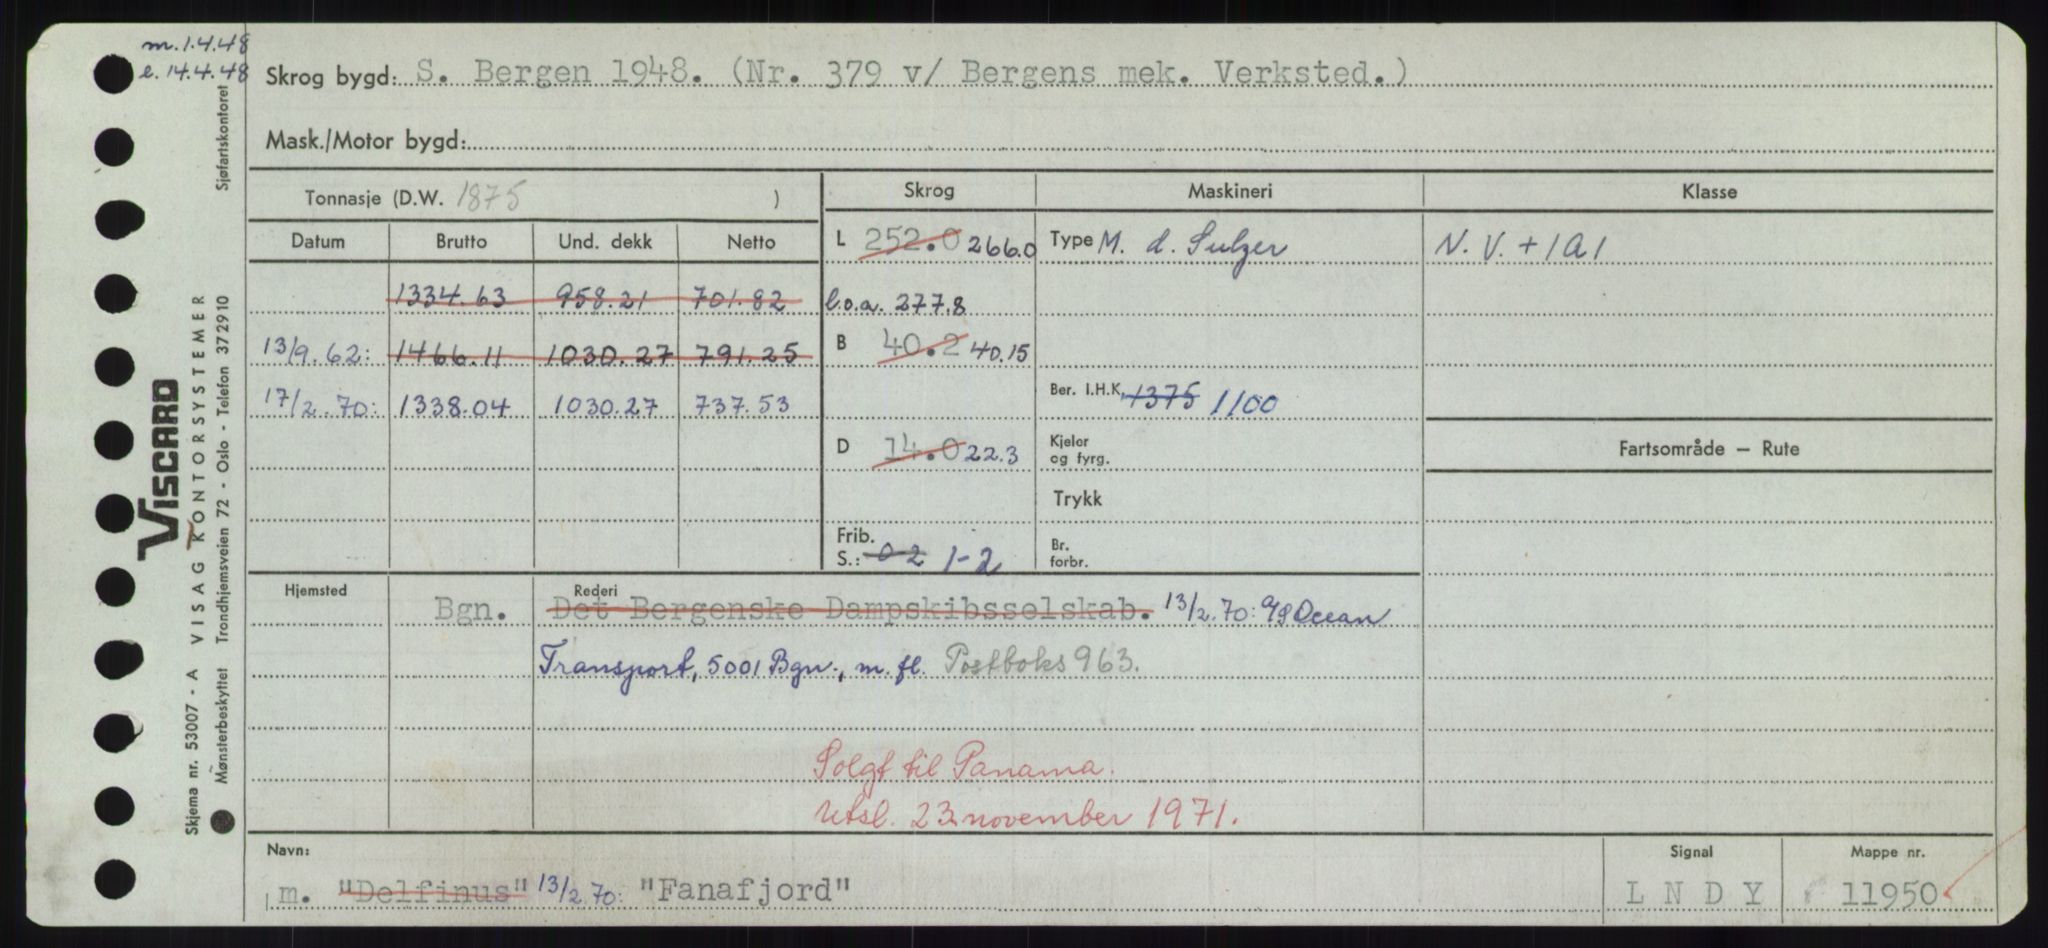 m. 1.4.48
e. 14.4.48
Skrog bygd: S. Bergen 1948. (Nr. 379 v/ Bergens mek. Verksted.)
Mask./Motor bygd:
Tonnasje (D.W. 1875 )
Skrog Maskineri Klasse
Datum Brutto Und. dekk Netto
L 252.0 266.0 Type M. d. Sulzer N. V. + 1A1
1334.63 958.21 701.82
l.o.a. 277.8
13/9.62: 1466.11 1030.27 791.25
B 40.2 40.15
17/2.70: 1338.04 1030.27 737.53
Ber. I.H.K. 1375 1100
D 14.0 22.3
Kjeler
og fyrg.
Fartsområde – Rute
Trykk
Frib.
S.: 0 2 1-2
Br.
forbr.
Hjemsted Rederi
Bgn. Det Bergenske Dampskibsselskab. 13/2.70: A/S Ocean
Transport, 5001 Bgn., m. fl. Postboks 963.
Solgt til Panama.
Utsl. 23. november 1971.
Navn: Signal Mappe nr.
m. "Delfinus" 13/2.70: "Fanafjord" L N D Y 11950
VISCARD
Skjema nr. 53007 - A VISAG KONTORSYSTEMER
Mønsterbeskyttet Trondhjemsveien 72 - Oslo - Telefon 372910 Sjøfartskontoret